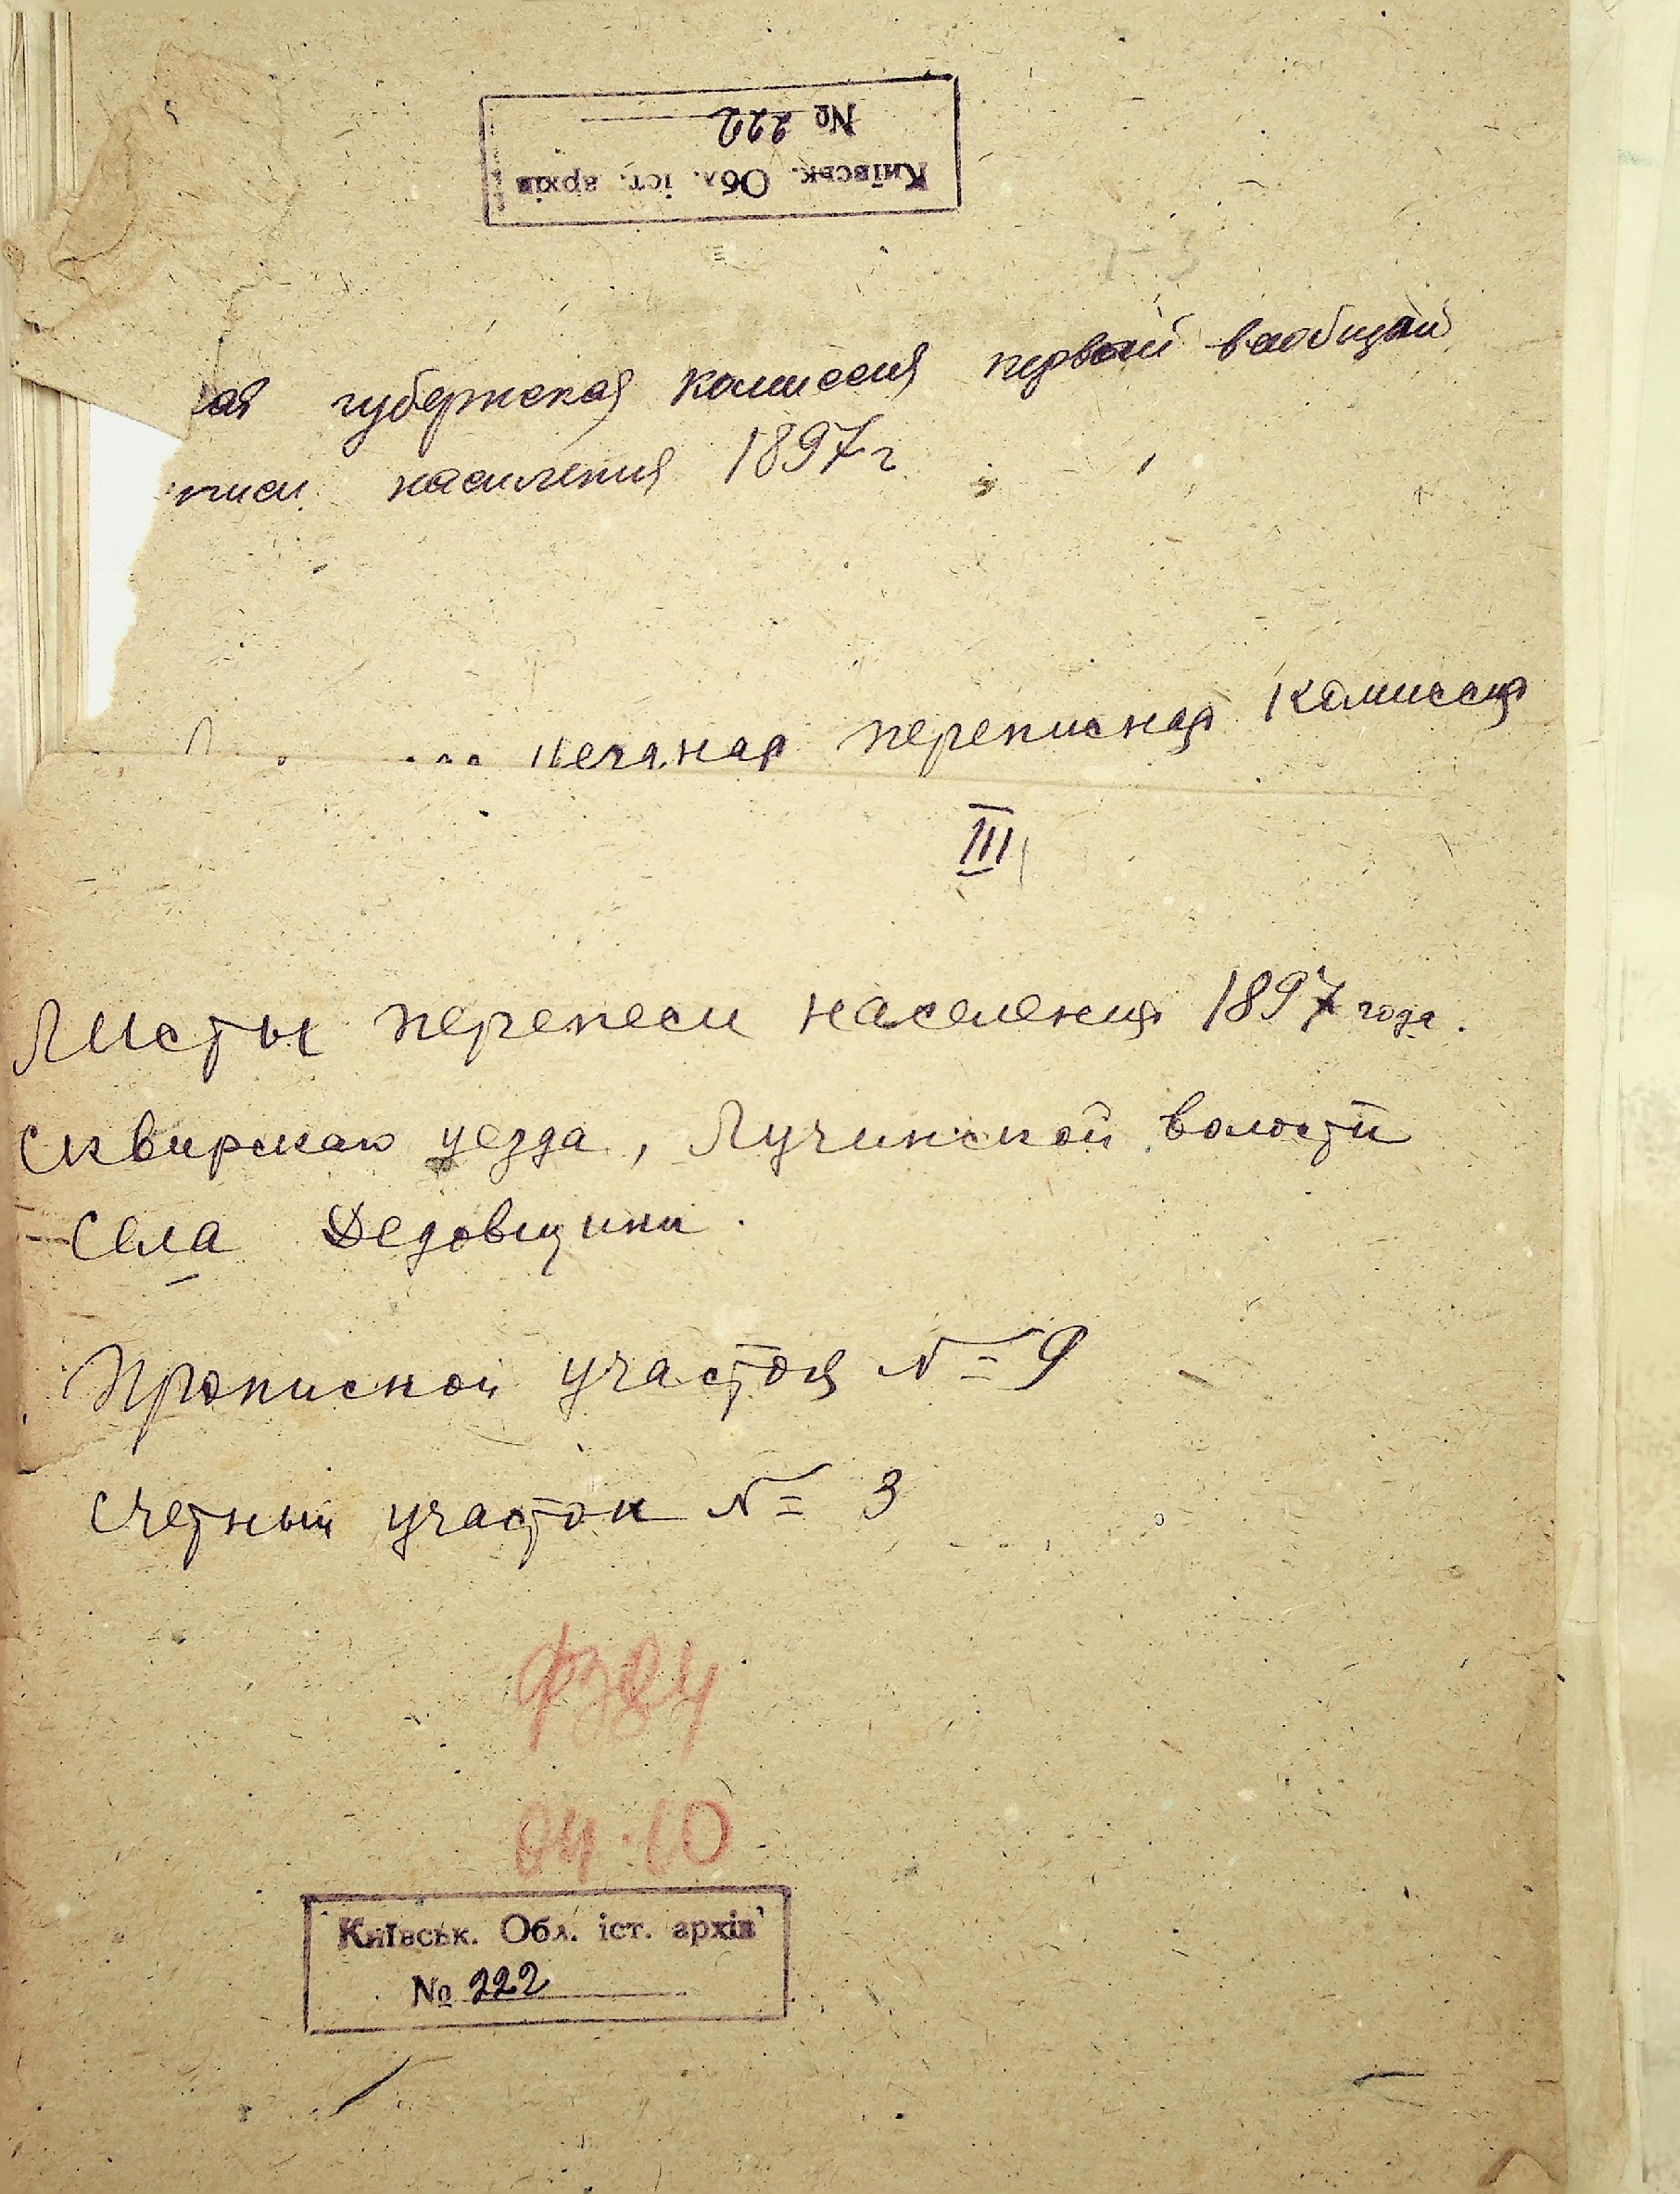 № 222
Київськ. Обл. іст. архів
ая губернская комиссия первой всеобщей
писи населения 1897 г
переписная Комиссия
III
Листы переписи населения 1897 года.
Сквирского уезда, Лучинской волости
Села Дедовщини.
Прописной участок № 9
Счетный участок № 3
Ф384
04.10
Київськ. Обл. іст. архів
№ 222